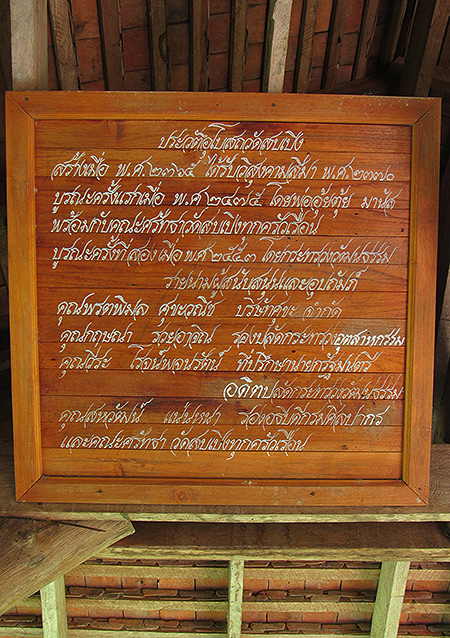 ประวัติอุโบสถวัดสบเปิง
สร้างเมื่อ พ.ศ.๒๓๖๕ ได้รับวิสุงคามสีมา พ.ศ.๒๓๗๐
บูรณะครั้งแรกเมื่อ พ.ศ.๒๔๗๕ โดยพ่ออุ้ยตุ้ย มานัส
พร้อมกับคณะศรัทธาวัดสบเปิงทุกครัวเรือน
บูรณะครั้งที่สองเมื่อพ.ศ.๒๕๔๓ โดยกระทรวงวัฒนธรรม
รายนามผู้สนับสนุนและอุปถัมภ์
คุณพรตพิมล ศุขะวณิช บริษัทศุขะ จำกัด
คุณกฤษณา รวยอาจิณ รองปลัดกระทรวงอุตสาหกรรม
คุณวีระ โรจน์พจนรัตน์ ที่ปรึกษานายกรัฐมนตรี
อดีตปลัดกระทรวงวัฒนธรรม
คุณสหวัฒน์ แน่นหนา รองอธิบดีกรมศิลปากร
และคณะศรัทธาวัดสบเปิงทุกครัวเรือน